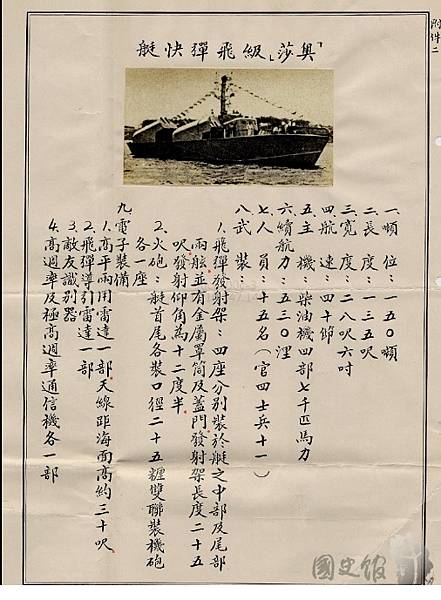 附件二
「奧莎」級飛彈快艇
一、噸位：一五〇噸
二、長度：一三五呎
三、寬度：二八呎六吋
四、航速：四十節
五、主機：柴油機四部七千匹馬力
六、續航力：五三〇浬
七、人員：十五名（官四士兵十一）
八、武裝：
1.飛彈發射架：四座分別裝於艇之中部及尾部
兩舷並有金屬罩筒及蓋門發射架長度二十五
呎發射仰角為十二度半
2.火砲：艇首尾各裝口徑二十五糎雙聯裝機砲
各一座
九、電子裝備
1.高平兩用雷達一部天線距海面高約三十呎
2.飛彈導引雷達一部
3.敵友識別器
4.高週率及極高週率通信機各一部
國史館